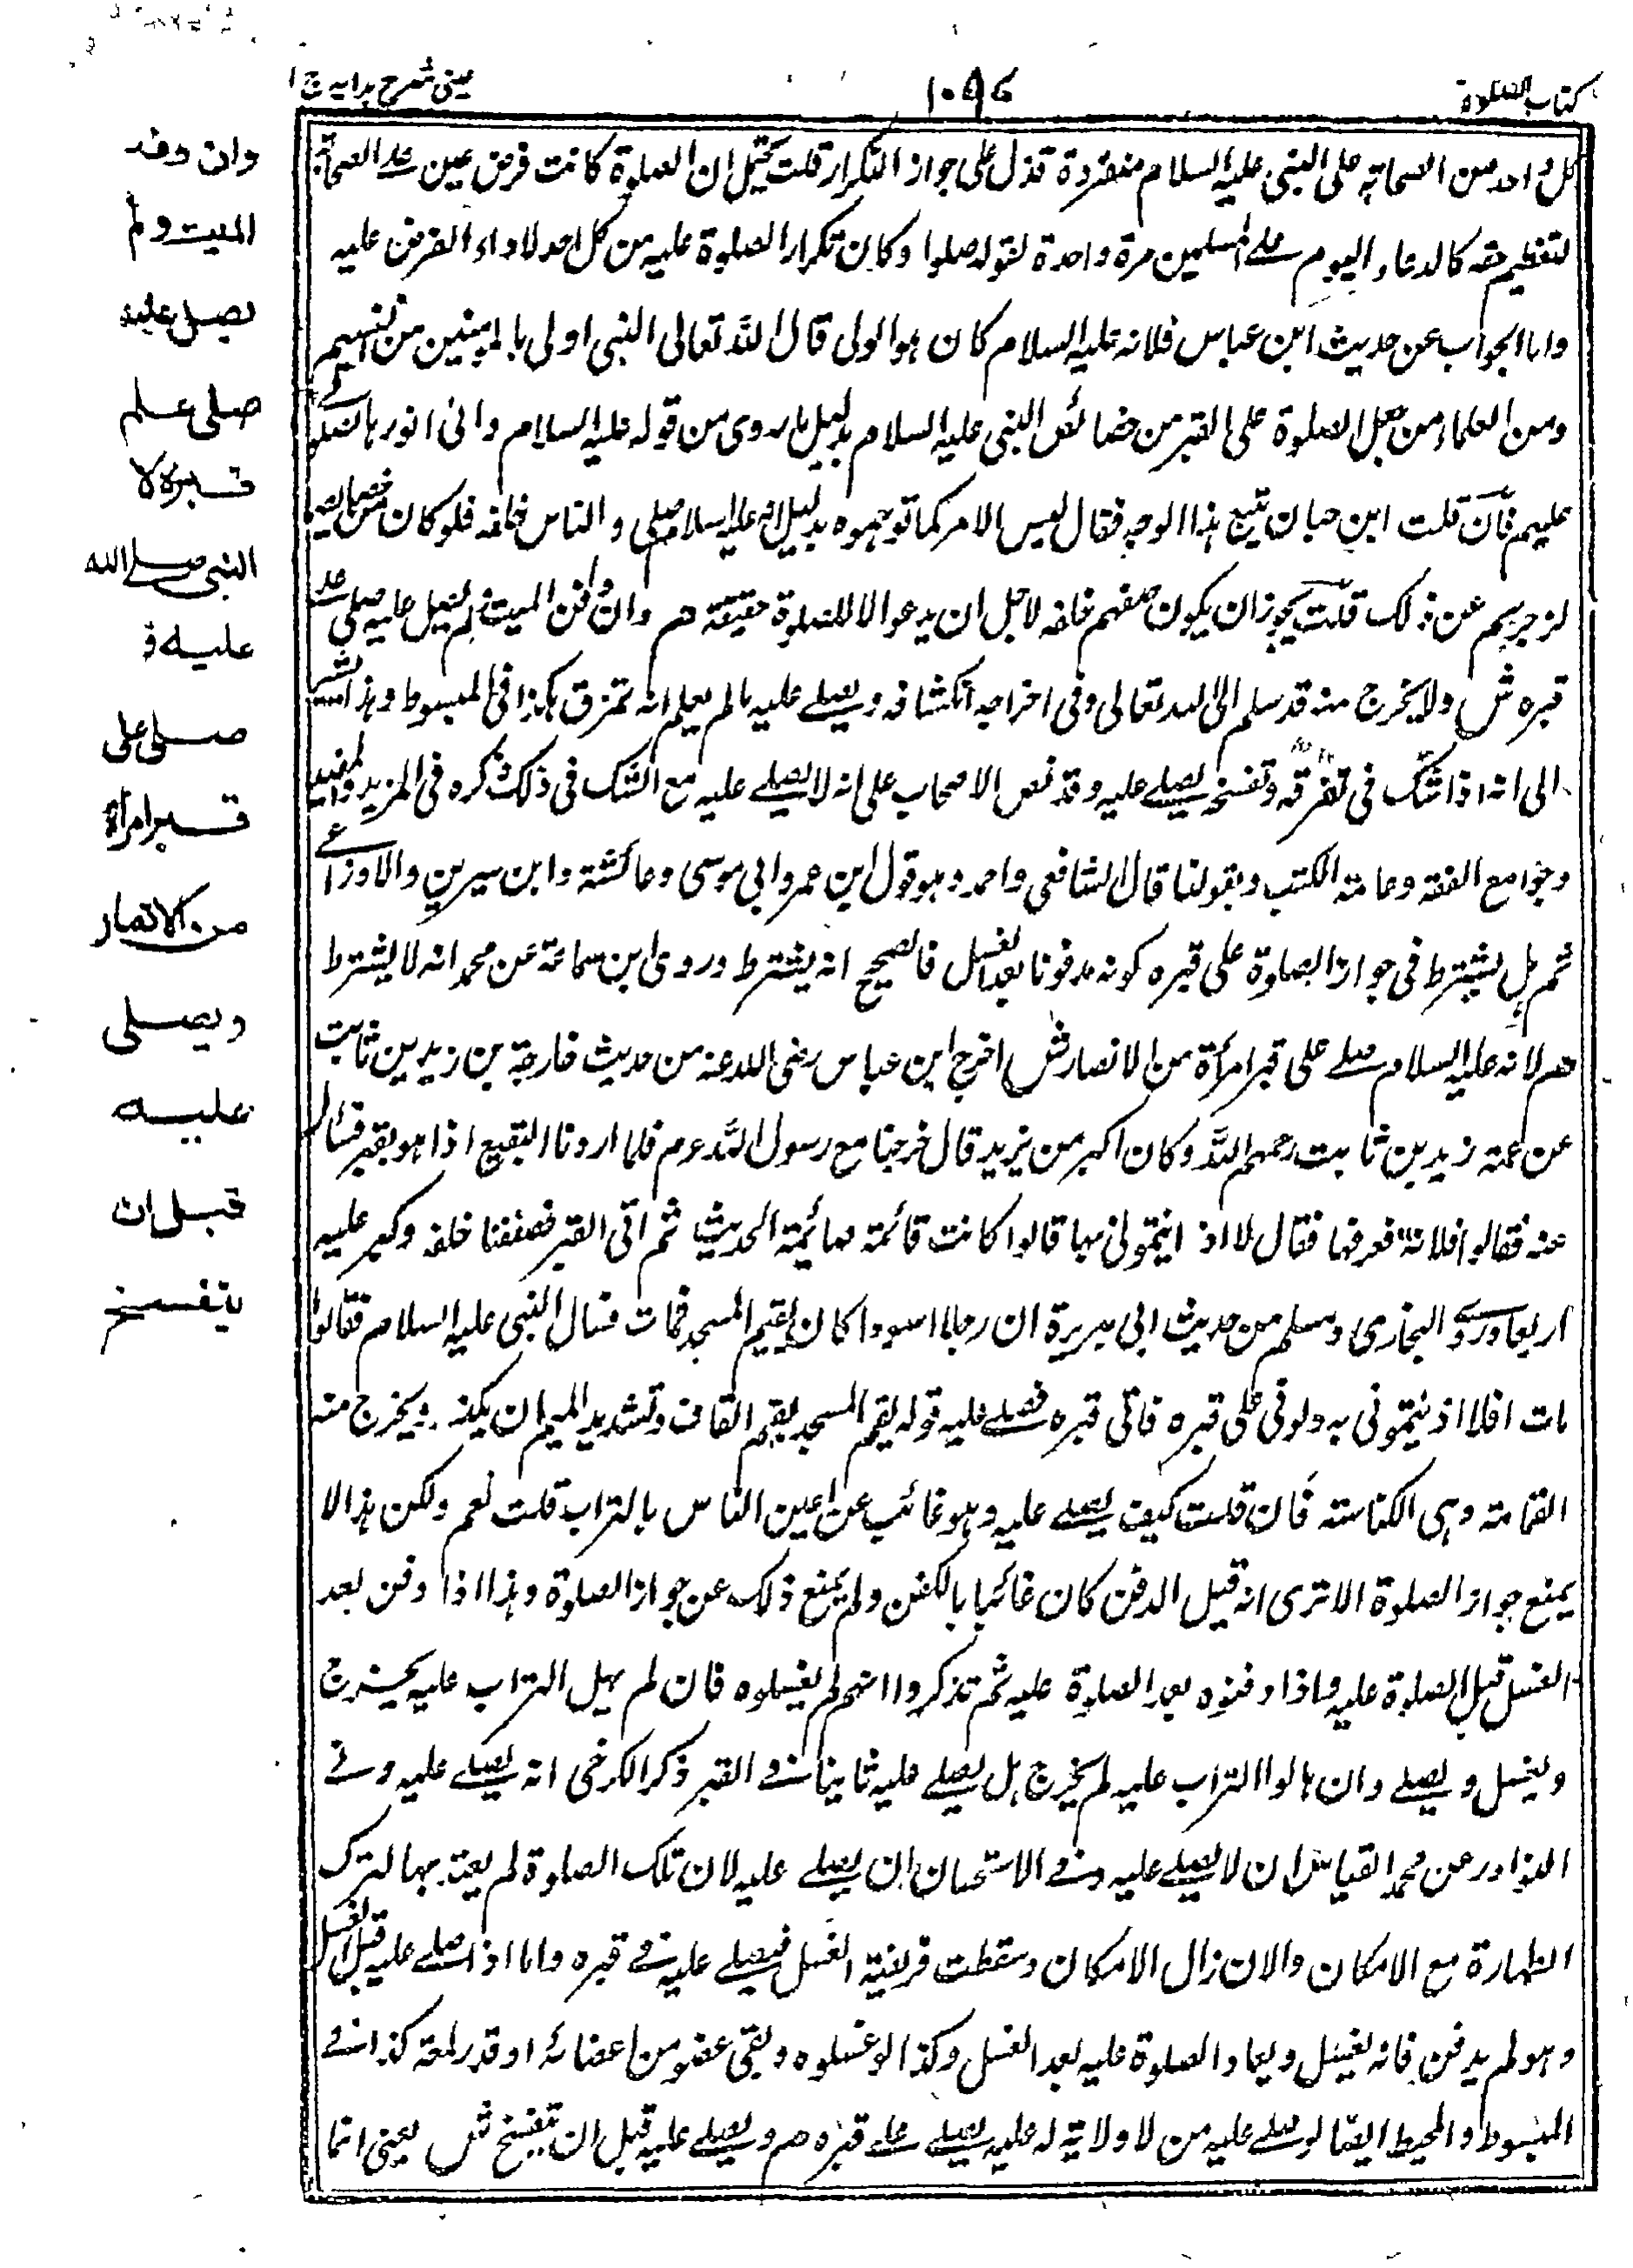 كتاب الصلوة
١٠٩٧
عينى شرح هدايه ج ١
كل واحد من الصحابة على النبى عليه السلام منفردة فدل على جواز التكرار قلت يحتمل ان الصلوة كانت فرض عين على الصحابة
لتعظيم حقه كالدعاء اليوم على المسلمين مرة واحدة لقوله صلوا وكان تكرار الصلوة عليه من كل احد لاداء الفرض عليه
واما الجواب عن حديث ابن عباس فلانه عليه السلام كان هو الولى قال الله تعالى النبى اولى بالمؤمنين من انفسهم
ومن العلماء من جعل الصلوة على القبر من خصائص النبى عليه السلام بدليل ما روى من قوله عليه السلام وانى انورها بالصلوة
عليهم فان قلت ابن حبان تتبع هذا الوجه فقال ليس الامر كما توهموه بدليل انه عليه السلام صلى والناس خلفه فلو كان من خصائصه
لزجرهم عن ذلك قلت يجوز ان يكون صفهم خلفه لاجل ان يدعوا لا للصلوة حقيقة هم وان دفن الميت ولم يصل عليه صلى على
قبره ش ولا يخرج منه قد سلم الى الله تعالى وفى اخراجه انكشافه ويصلے عليه ما لم يعلم انه تمزق هكذا فى المبسوط وهذا يشير
الى انه اذا شك فى تفرقه وتفسخه يصلے عليه وقد نص الاصحاب على انه لا يصلے عليه مع الشك فى ذلك ذكره فى المزيد والمفيد
وجوامع الفقه وعامة الكتب وبقولنا قال الشافعى واحمد وهو قول ابن عمر وابى موسى وعائشة وابن سيرين والاوزاعى
ثم هل يشترط فى جواز الصلوة على قبره كونه مدفونا بعد الغسل فالصحيح انه يشترط وروى ابن سماعة عن محمد انه لا يشترط
هم لانه عليه السلام صلے على قبر امرأة من الانصار ش اخرج ابن عباس رضى الله عنه من حديث خارجة بن زيد بن ثابت
عن عمه زيد بن ثابت رحمهم الله وكان اكبر من يزيد قال خرجنا مع رسول الله ع م فلما اردنا البقيع اذا هو بقبر فسأل
عنه فقالوا فلانة فعرفها فقال لا اذنيتمونى بها قالوا كانت قائمة صائمة الحديث ثم اتى القبر فصففنا خلفه وكبر عليه
اربعا وروى البخارى ومسلم من حديث ابى هريرة ان رجلا اسود كان يقم المسجد فمات فسأل النبى عليه السلام فقالوا
مات افلا اذنيتمونى به دلونى على قبره فاتى قبره فصلے عليه قوله يقم المسجد بضم القاف وتشديد الميم ان يكنه ويخرج منه
القمامة وهى الكناسة فان قلت كيف يصلے عليه وهو غائب عن اعين الناس بالتراب قلت نعم ولكن هذا لا
يمنع جواز الصلوة الا ترى انه قبل الدفن كان غائبا بالكفن ولم يمنع ذلك عن جواز الصلوة وهذا اذا دفن بعد
الغسل قبل الصلوة عليه واذا دفنوه بعد الصلوة عليه ثم تذكروا انهم لم يغسلوه فان لم يهل التراب عليه يخرج
ويغسل ويصلے وان هالوا التراب عليه لم يخرج هل يصلے عليه ثانيا فى القبر ذكر الكرخى انه يصلے عليه وفى
النوادر عن محمد القياس ان لا يصلے عليه وفى الاستحسان ان يصلے عليه لان تلك الصلوة لم يعتد بها لترك
الطهارة مع الامكان والان زال الامكان وسقطت فريضة الغسل فيصلے عليه فى قبره واما اذا صلے عليه قبل الغسل
وهو لم يدفن فانه يغسل ويعاد الصلوة عليه بعد الغسل وكذا لو غسلوه وبقى عضو من اعضائه او قدر لمعة كذا فى
المبسوط والمحيط ايضا لو صلے عليه من لا ولاية له عليه يصلے على قبره هم ويصلے عليه قبل ان يتفسخ ش يعنى انما
وان دفن
الميت ولم
يصل عليه
صلى على
قبره لا
النبى صلے الله
عليه و
صلى على
قبر امرأة
من الانصار
ويصلى
عليه
قبل ان
يتفسخ